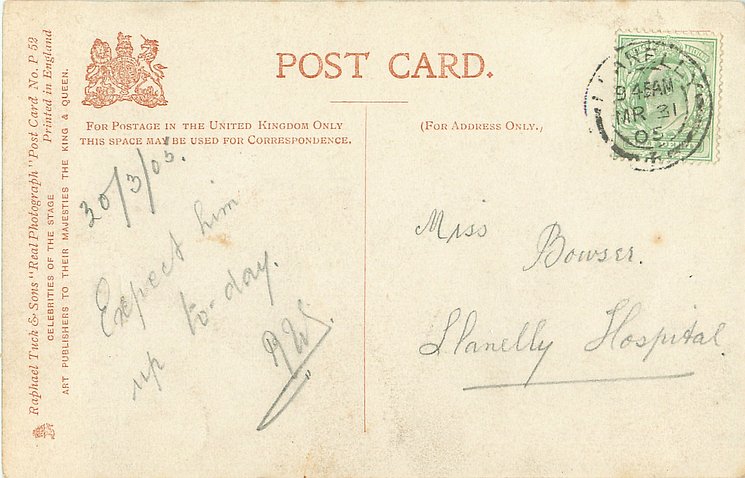 Raphael Tuck & Sons "Real Photograph" Post Card No. P 52
Printed in England
CELEBRITIES OF THE STAGE
ART PUBLISHERS TO THEIR MAJESTIES THE KING & QUEEN.
POST CARD.
FOR POSTAGE IN THE UNITED KINGDOM ONLY
THIS SPACE MAY BE USED FOR CORRESPONDENCE.
(FOR ADDRESS ONLY.)
LLANELLY
9 45AM
MR 31
05
30/3/05.
Expect him
up to-day.
Miss Bowser.
Llanelly Hospital